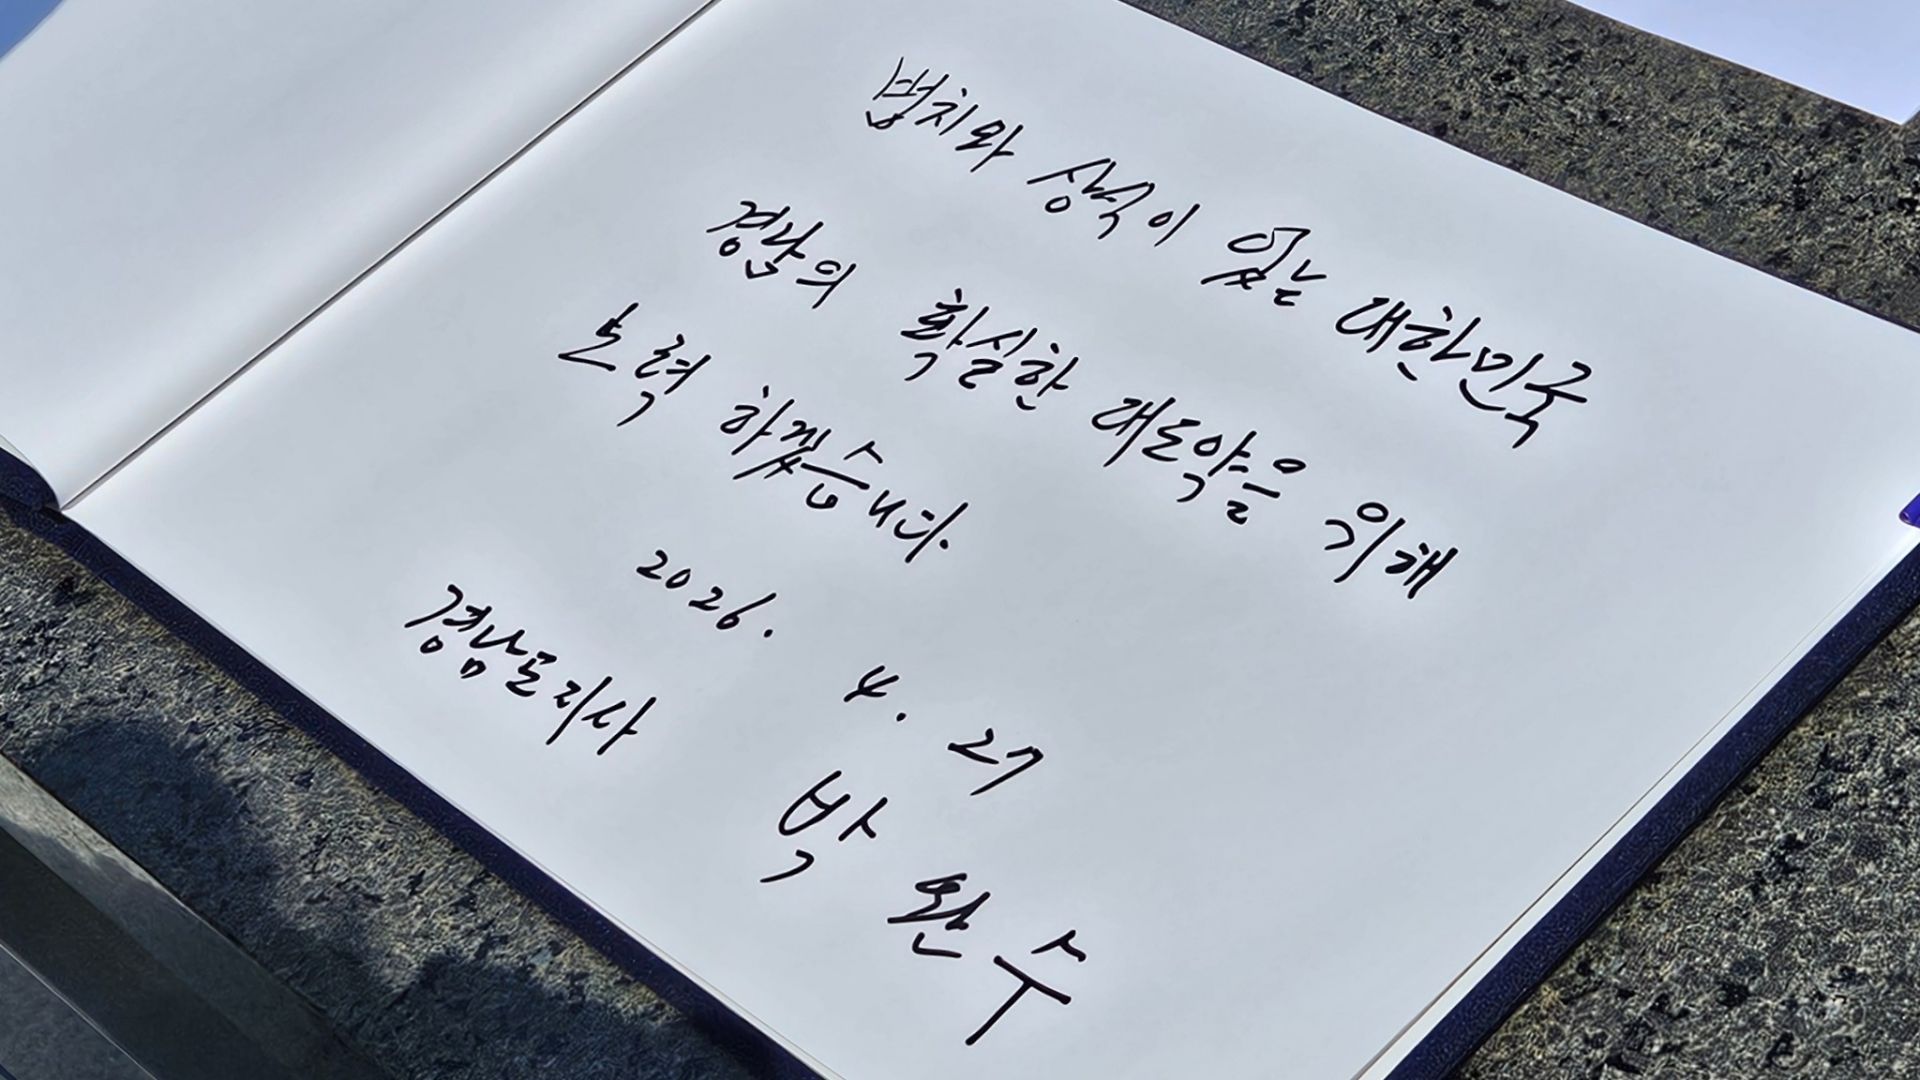 법치와 상식이 있는 대한민국
경남의 확실한 대도약을 위해
노력 하겠습니다.
2026. 4. 27
경남도지사
박완수